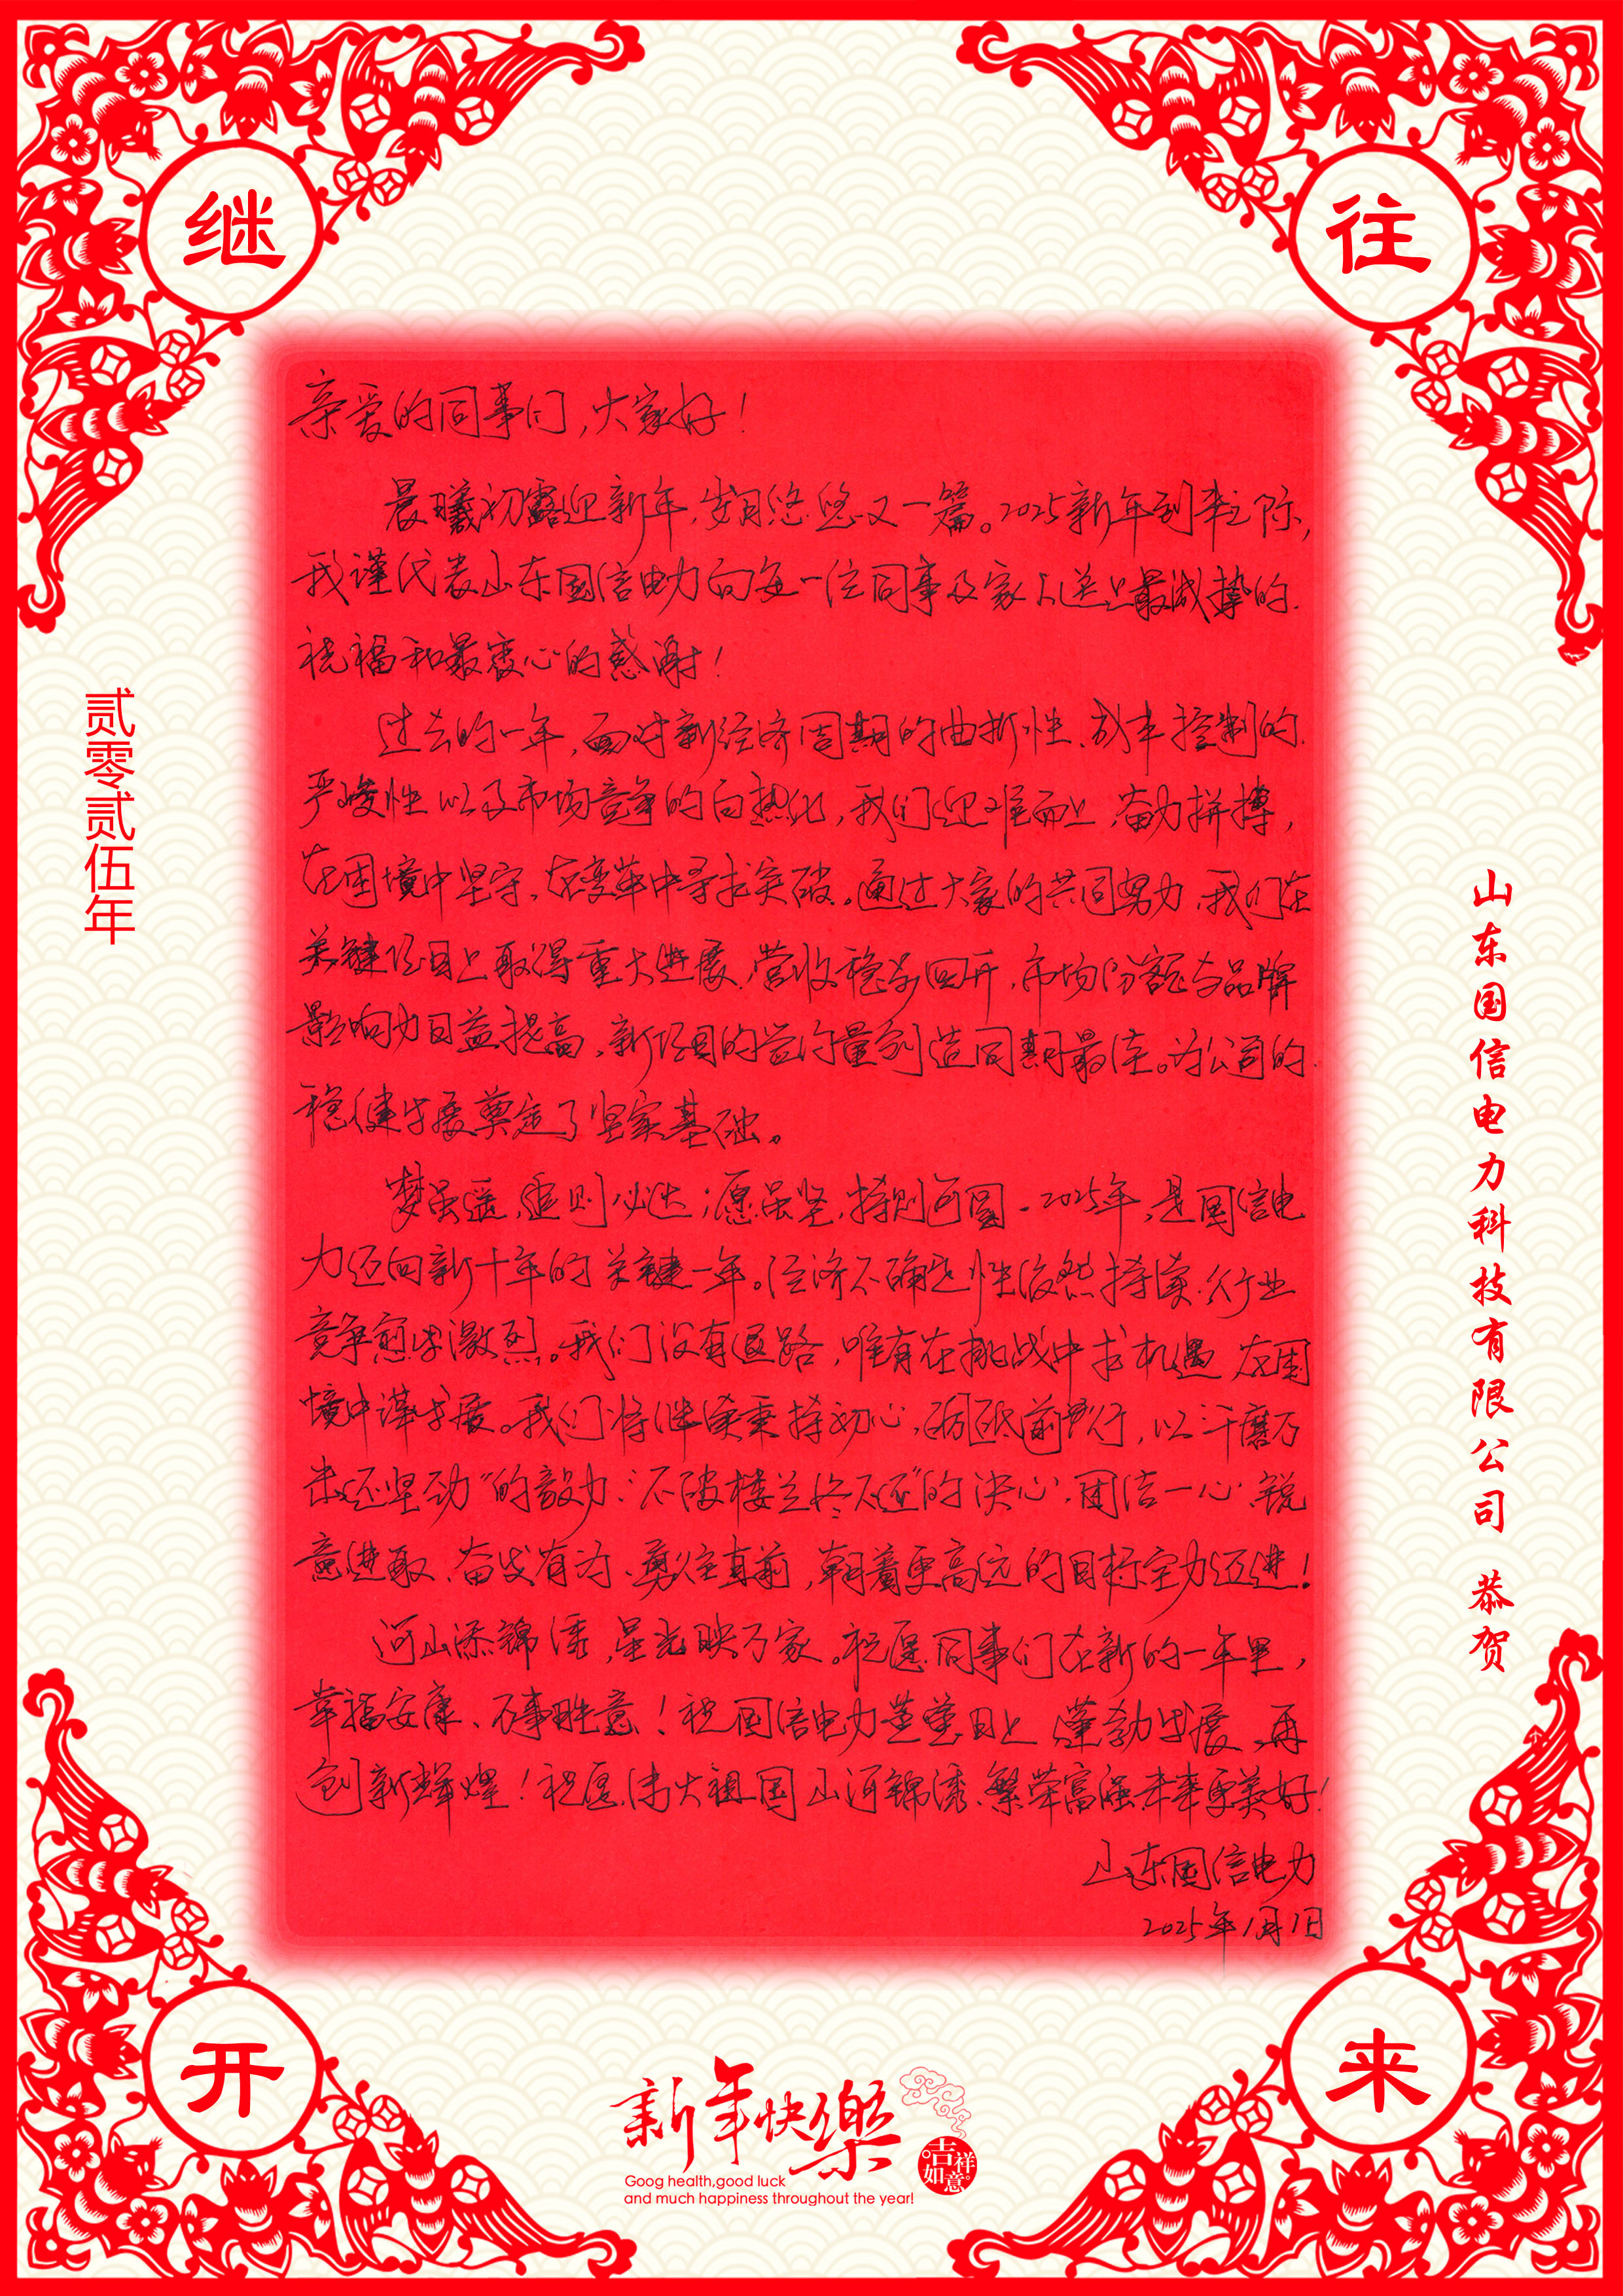 继
往
亲爱的同事们,大家好!
晨曦初露迎新年,岁月悠悠又一篇。2025新年到来之际,
我谨代表山东国信电力向每一位同事及家人送上最诚挚的
祝福和最衷心的感谢!
过去的一年,面对新经济周期的曲折性、成本控制的
严峻性以及市场竞争的白热化,我们迎难而上,奋力拼搏,
在困境中坚守、在变革中寻求突破。通过大家的共同努力,我们在
关键项目上取得重大进展,营收稳步回升,市场份额与品牌
影响力日益提高,新项目的签约量创造同期最佳。为公司的
稳健发展奠定了坚实基础。
梦虽遥,追则必达;愿虽坚,持则可圆。2025年,是国信电
力迈向新十年的关键一年。经济不确定性依然持续,行业
竞争愈发激烈。我们没有退路,唯有在挑战中求机遇,在困
境中谋发展。我们将继续秉持初心,砥砺前行,以“千磨万
击还坚劲”的毅力,“不破楼兰终不还”的决心,团结一心、锐
意进取、奋发有为、勇往直前,朝着更高远的目标全力迈进!
河山添锦绣,星光映万家。祝愿同事们在新的一年里,
幸福安康、万事胜意!祝国信电力蒸蒸日上,蓬勃发展,再
创新辉煌!祝愿伟大祖国山河锦绣、繁荣富强未来更美好!
山东国信电力
2025年1月1日
贰零贰伍年
山东国信电力科技有限公司 恭贺
开
来
新年快樂
吉祥如意
Goog health,good luck
and much happiness throughout the year!